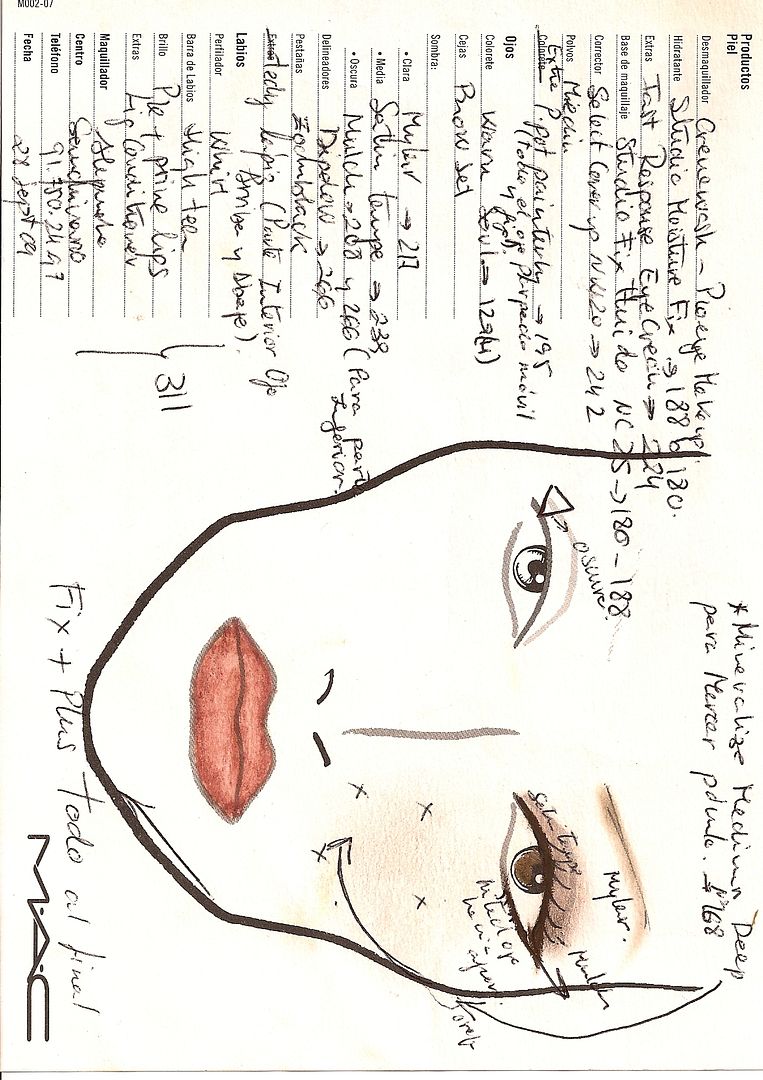 M002-07
Productos
Piel
Desmaquillador Cremewash - Pro eye Makeup
Hidratante Studio Moisture Fix → 188 ó 180.
Extras Fast Response Eye Cream → 224
Base de maquillaje Studio Fix fluido NC 25 → 180 - 188
Corrector Select Cover up NW20 → 242
Polvos Medium
Colorete Extra P. pot painterly → 195
(todo el ojo párpado móvil
y fijo).
Ojos
Colorete Warm Soul → 129(4)
Cejas Brow Set
Sombra:
• Clara Mylar → 217
• Media Satin taupe → 239
• Oscura Mulch → 208 y 266 (Para parte
Inferior.
Delineadores Dipdow → 266
Pestañas Zoomblack
Extras Tedy lapiz (Parte Interior Ojo
Arriba y Abajo).
Labios
Perfilador Whirl
Barra de Labios High tea
Brillo Plk + prime lips
Extras Lip Conditioner
311
Maquillador Alejandra
Centro
Teléfono 91.750.24 97
Fecha 28 Sept 09
* Mineralize Medium Deep
para Marcar pómulo. → nº168
oscuro.
Satin taupe
Mylar.
Mulch
Fix + Plus todo al final
M·A·C